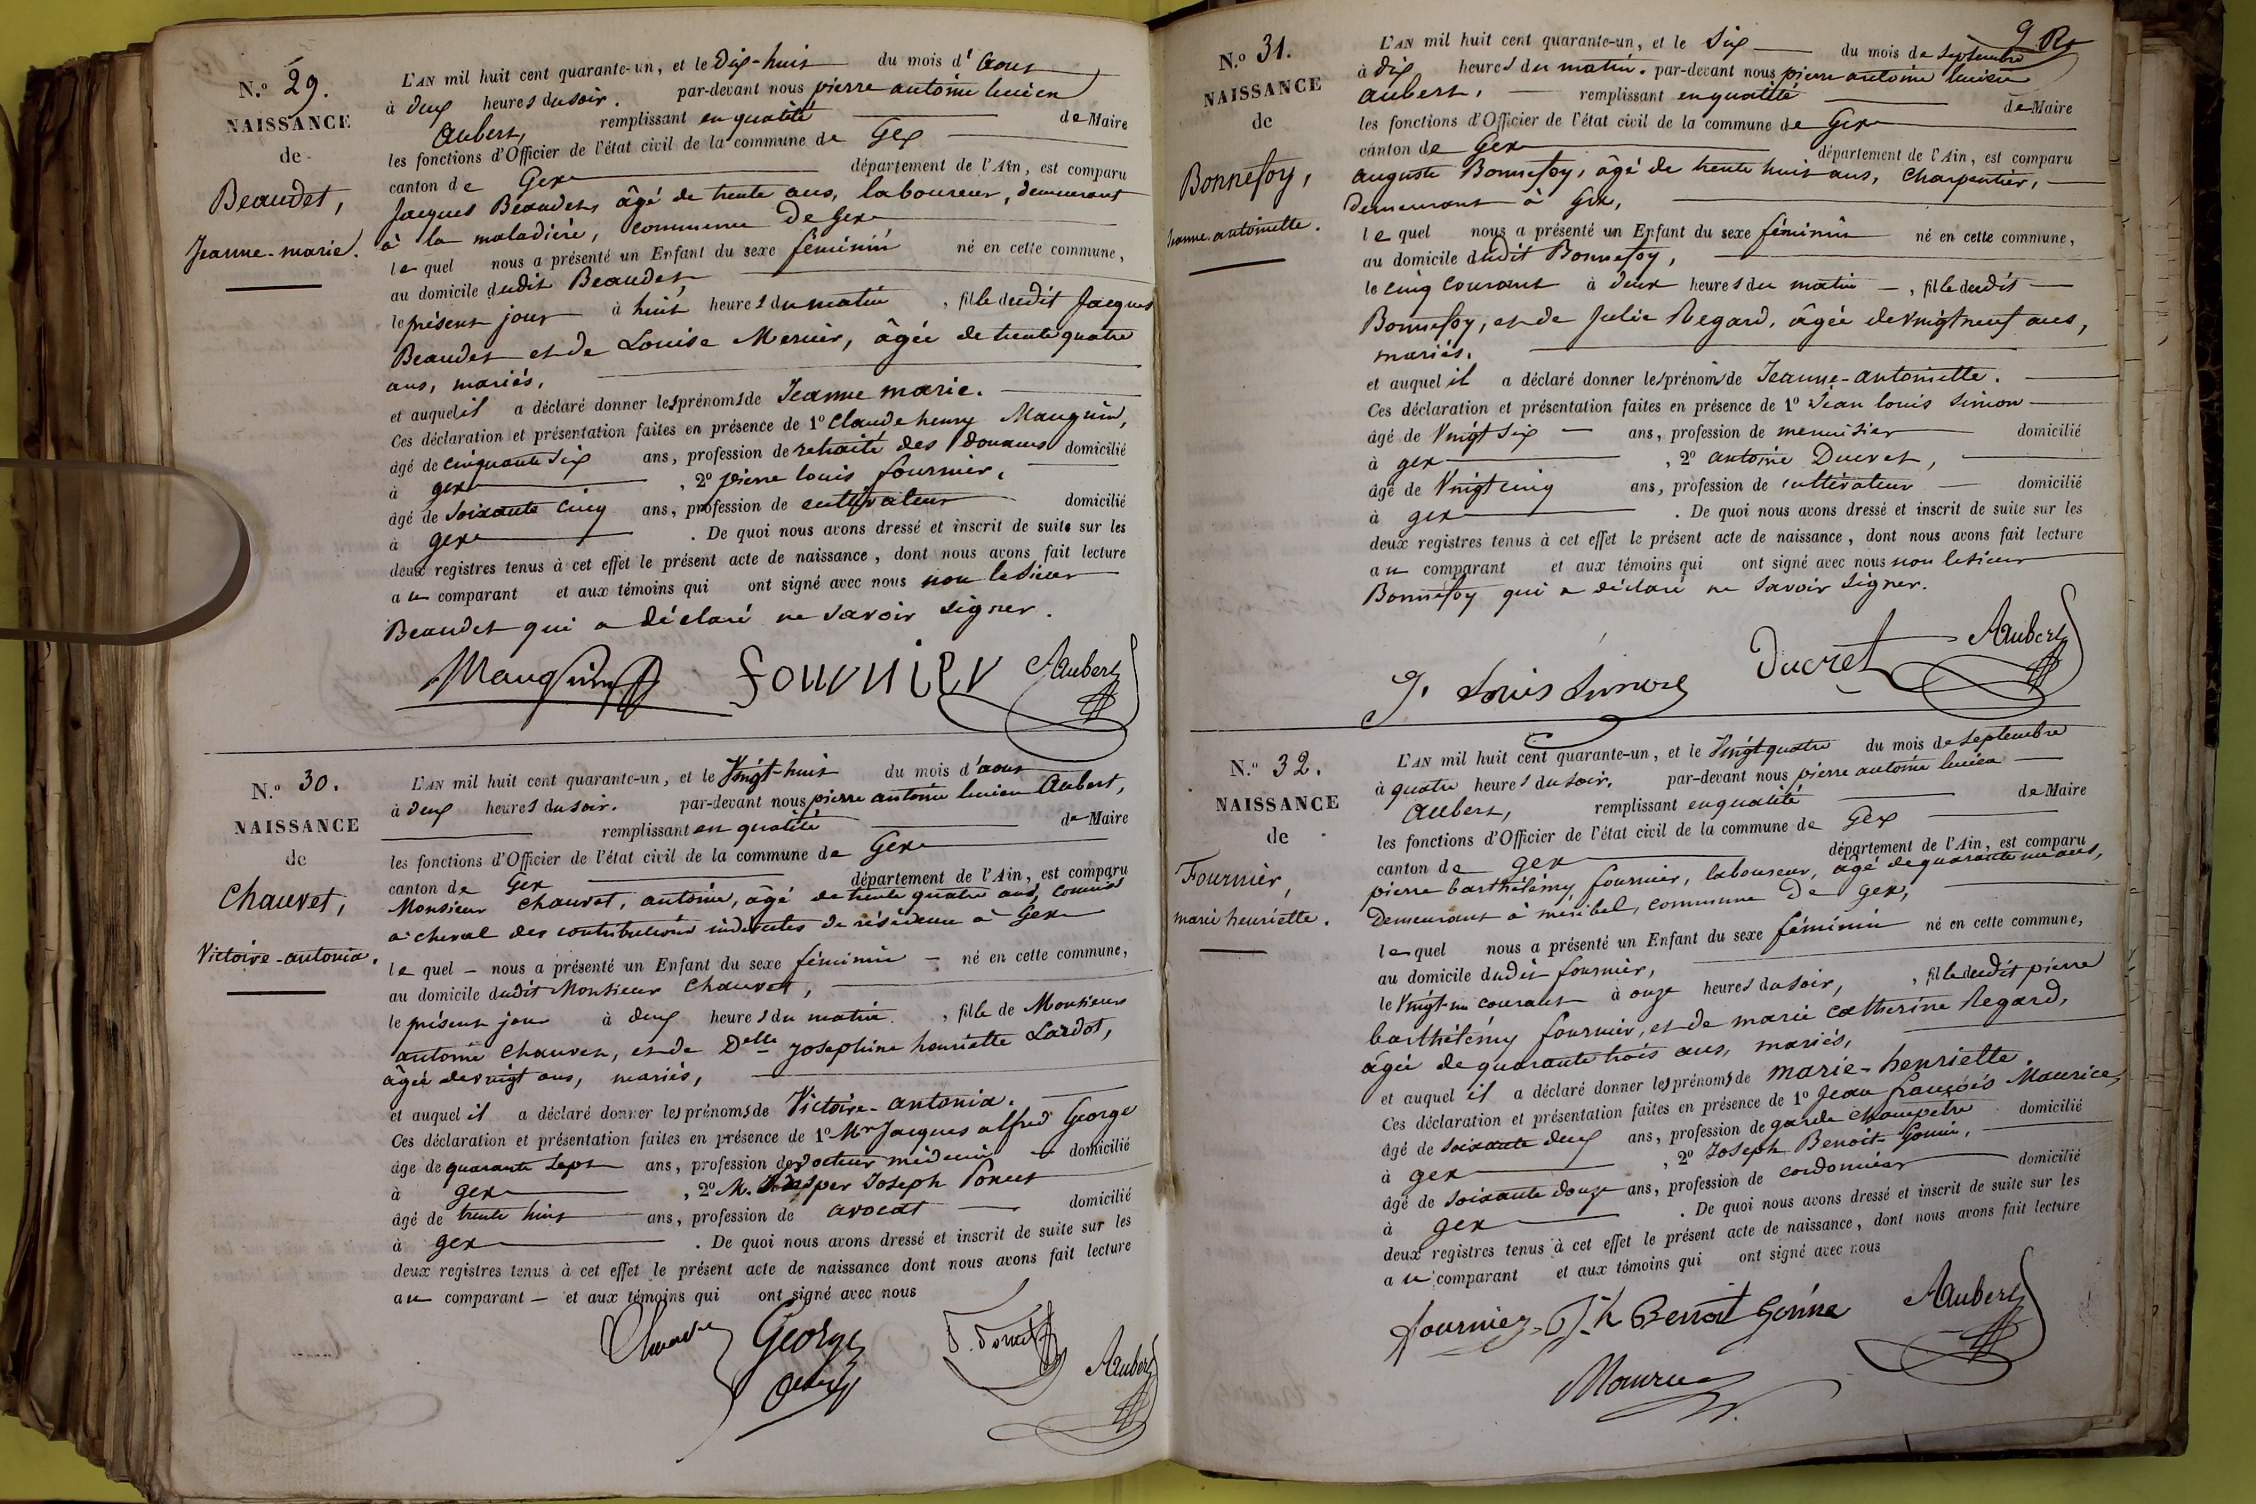 N.º 29.
NAISSANCE
de
Beaudet,
Jeanne-marie.
L'AN mil huit cent quarante-un, et le Dix-huit du mois d'Aout
à deux heures du soir. par-devant nous pierre antoine lucien
Aubert, remplissant en qualité de Maire
les fonctions d'Officier de l'état civil de la commune de Gex
canton de Gex département de l'Ain, est comparu
Jacques Beaudet, âgé de trente ans, laboureur, demeurant
à la maladière, commune de Gex
lequel nous a présenté un Enfant du sexe féminin né en cette commune,
au domicile dudit Beaudet,
le présent jour à huit heures du matin, fille dudit Jacques
Beaudet et de Louise Mercier, âgée de trente quatre
ans, mariés.
et auquel il a déclaré donner les prénoms de Jeanne marie.
Ces déclaration et présentation faites en présence de 1º Claude henry Mauquin,
âgé de cinquante six ans, profession de retraité des Douanes domicilié
à gex, 2º pierre louis fournier,
âgé de soixante cinq ans, profession de cultivateur domicilié
à gex. De quoi nous avons dressé et inscrit de suite sur les
deux registres tenus à cet effet le présent acte de naissance, dont nous avons fait lecture
au comparant et aux témoins qui ont signé avec nous non le sieur
Beaudet qui a déclaré ne savoir signer.
Mauquin fournier Aubert
N.º 30.
NAISSANCE
de
Chauvet,
Victoire-antonia.
L'AN mil huit cent quarante-un, et le Vingt-huit du mois d'aout
à deux heures du soir. par-devant nous pierre antoine lucien Aubert,
remplissant en qualité de Maire
les fonctions d'Officier de l'état civil de la commune de Gex
canton de Gex département de l'Ain, est comparu
Monsieur Chauvet, antoine, âgé de trente quatre ans, commis
à cheval des contributions indirectes de résidence à Gex
lequel nous a présenté un Enfant du sexe féminin né en cette commune,
au domicile dudit Monsieur Chauvet,
le présent jour à deux heures du matin, fille de Monsieur
antoine Chauvet, et de Delle Josephine henriette Lardot,
âgée de vingt ans, mariés,
et auquel il a déclaré donner les prénoms de Victoire-antonia.
Ces déclaration et présentation faites en présence de 1º Mr Jacques alfred George
âgé de quarante sept ans, profession de docteur médecin domicilié
à gex, 2º M. Joseph Poncet
âgé de trente huit ans, profession de avocat domicilié
à gex. De quoi nous avons dressé et inscrit de suite sur les
deux registres tenus à cet effet le présent acte de naissance dont nous avons fait lecture
au comparant et aux témoins qui ont signé avec nous
Chauvet George P. Poncet Aubert
9 Rt
N.º 31.
NAISSANCE
de
Bonnefoy,
Jeanne-antoinette.
L'AN mil huit cent quarante-un, et le Six du mois de septembre
à dix heures du matin. par-devant nous pierre antoine lucien
aubert, remplissant en qualité de Maire
les fonctions d'Officier de l'état civil de la commune de Gex
canton de Gex département de l'Ain, est comparu
auguste Bonnefoy, âgé de trente huit ans, Charpentier,
demeurant à Gex,
lequel nous a présenté un Enfant du sexe féminin né en cette commune,
au domicile dudit Bonnefoy,
le cinq courant à deux heures du matin, fille dudit
Bonnefoy, et de Julie Regard, âgée de vingt neuf ans,
mariés.
et auquel il a déclaré donner les prénoms de Jeanne-antoinette.
Ces déclaration et présentation faites en présence de 1º Jean louis simon
âgé de Vingt six ans, profession de menuisier domicilié
à gex, 2º antoine Ducret,
âgé de Vingt cinq ans, profession de cultivateur domicilié
à gex. De quoi nous avons dressé et inscrit de suite sur les
deux registres tenus à cet effet le présent acte de naissance, dont nous avons fait lecture
au comparant et aux témoins qui ont signé avec nous non le sieur
Bonnefoy qui a déclaré ne savoir signer.
J. Louis Simon Ducret Aubert
N.º 32.
NAISSANCE
de
Fournier,
marie henriette.
L'AN mil huit cent quarante-un, et le Vingt quatre du mois de septembre
à quatre heures du soir. par-devant nous pierre antoine lucien
Aubert, remplissant en qualité de Maire
les fonctions d'Officier de l'état civil de la commune de Gex
canton de gex département de l'Ain, est comparu
pierre barthélémy fournier, laboureur, âgé de quarante un ans,
Demeurant à miribel, commune de gex,
lequel nous a présenté un Enfant du sexe féminin né en cette commune,
au domicile dudit fournier,
le Vingt-un courant à onze heures du soir, fille dudit pierre
barthélémy fournier, et de marie catherine Regard,
âgée de quarante trois ans, mariés,
et auquel il a déclaré donner les prénoms de marie-henriette.
Ces déclaration et présentation faites en présence de 1º Jean françois Maurice,
âgé de soixante deux ans, profession de garde champêtre domicilié
à gex, 2º Joseph Benoit Gonin,
âgé de soixante douze ans, profession de cordonnier domicilié
à gex. De quoi nous avons dressé et inscrit de suite sur les
deux registres tenus à cet effet le présent acte de naissance, dont nous avons fait lecture
au comparant et aux témoins qui ont signé avec nous
fournier Jh Benoit Gonin Aubert
Maurice